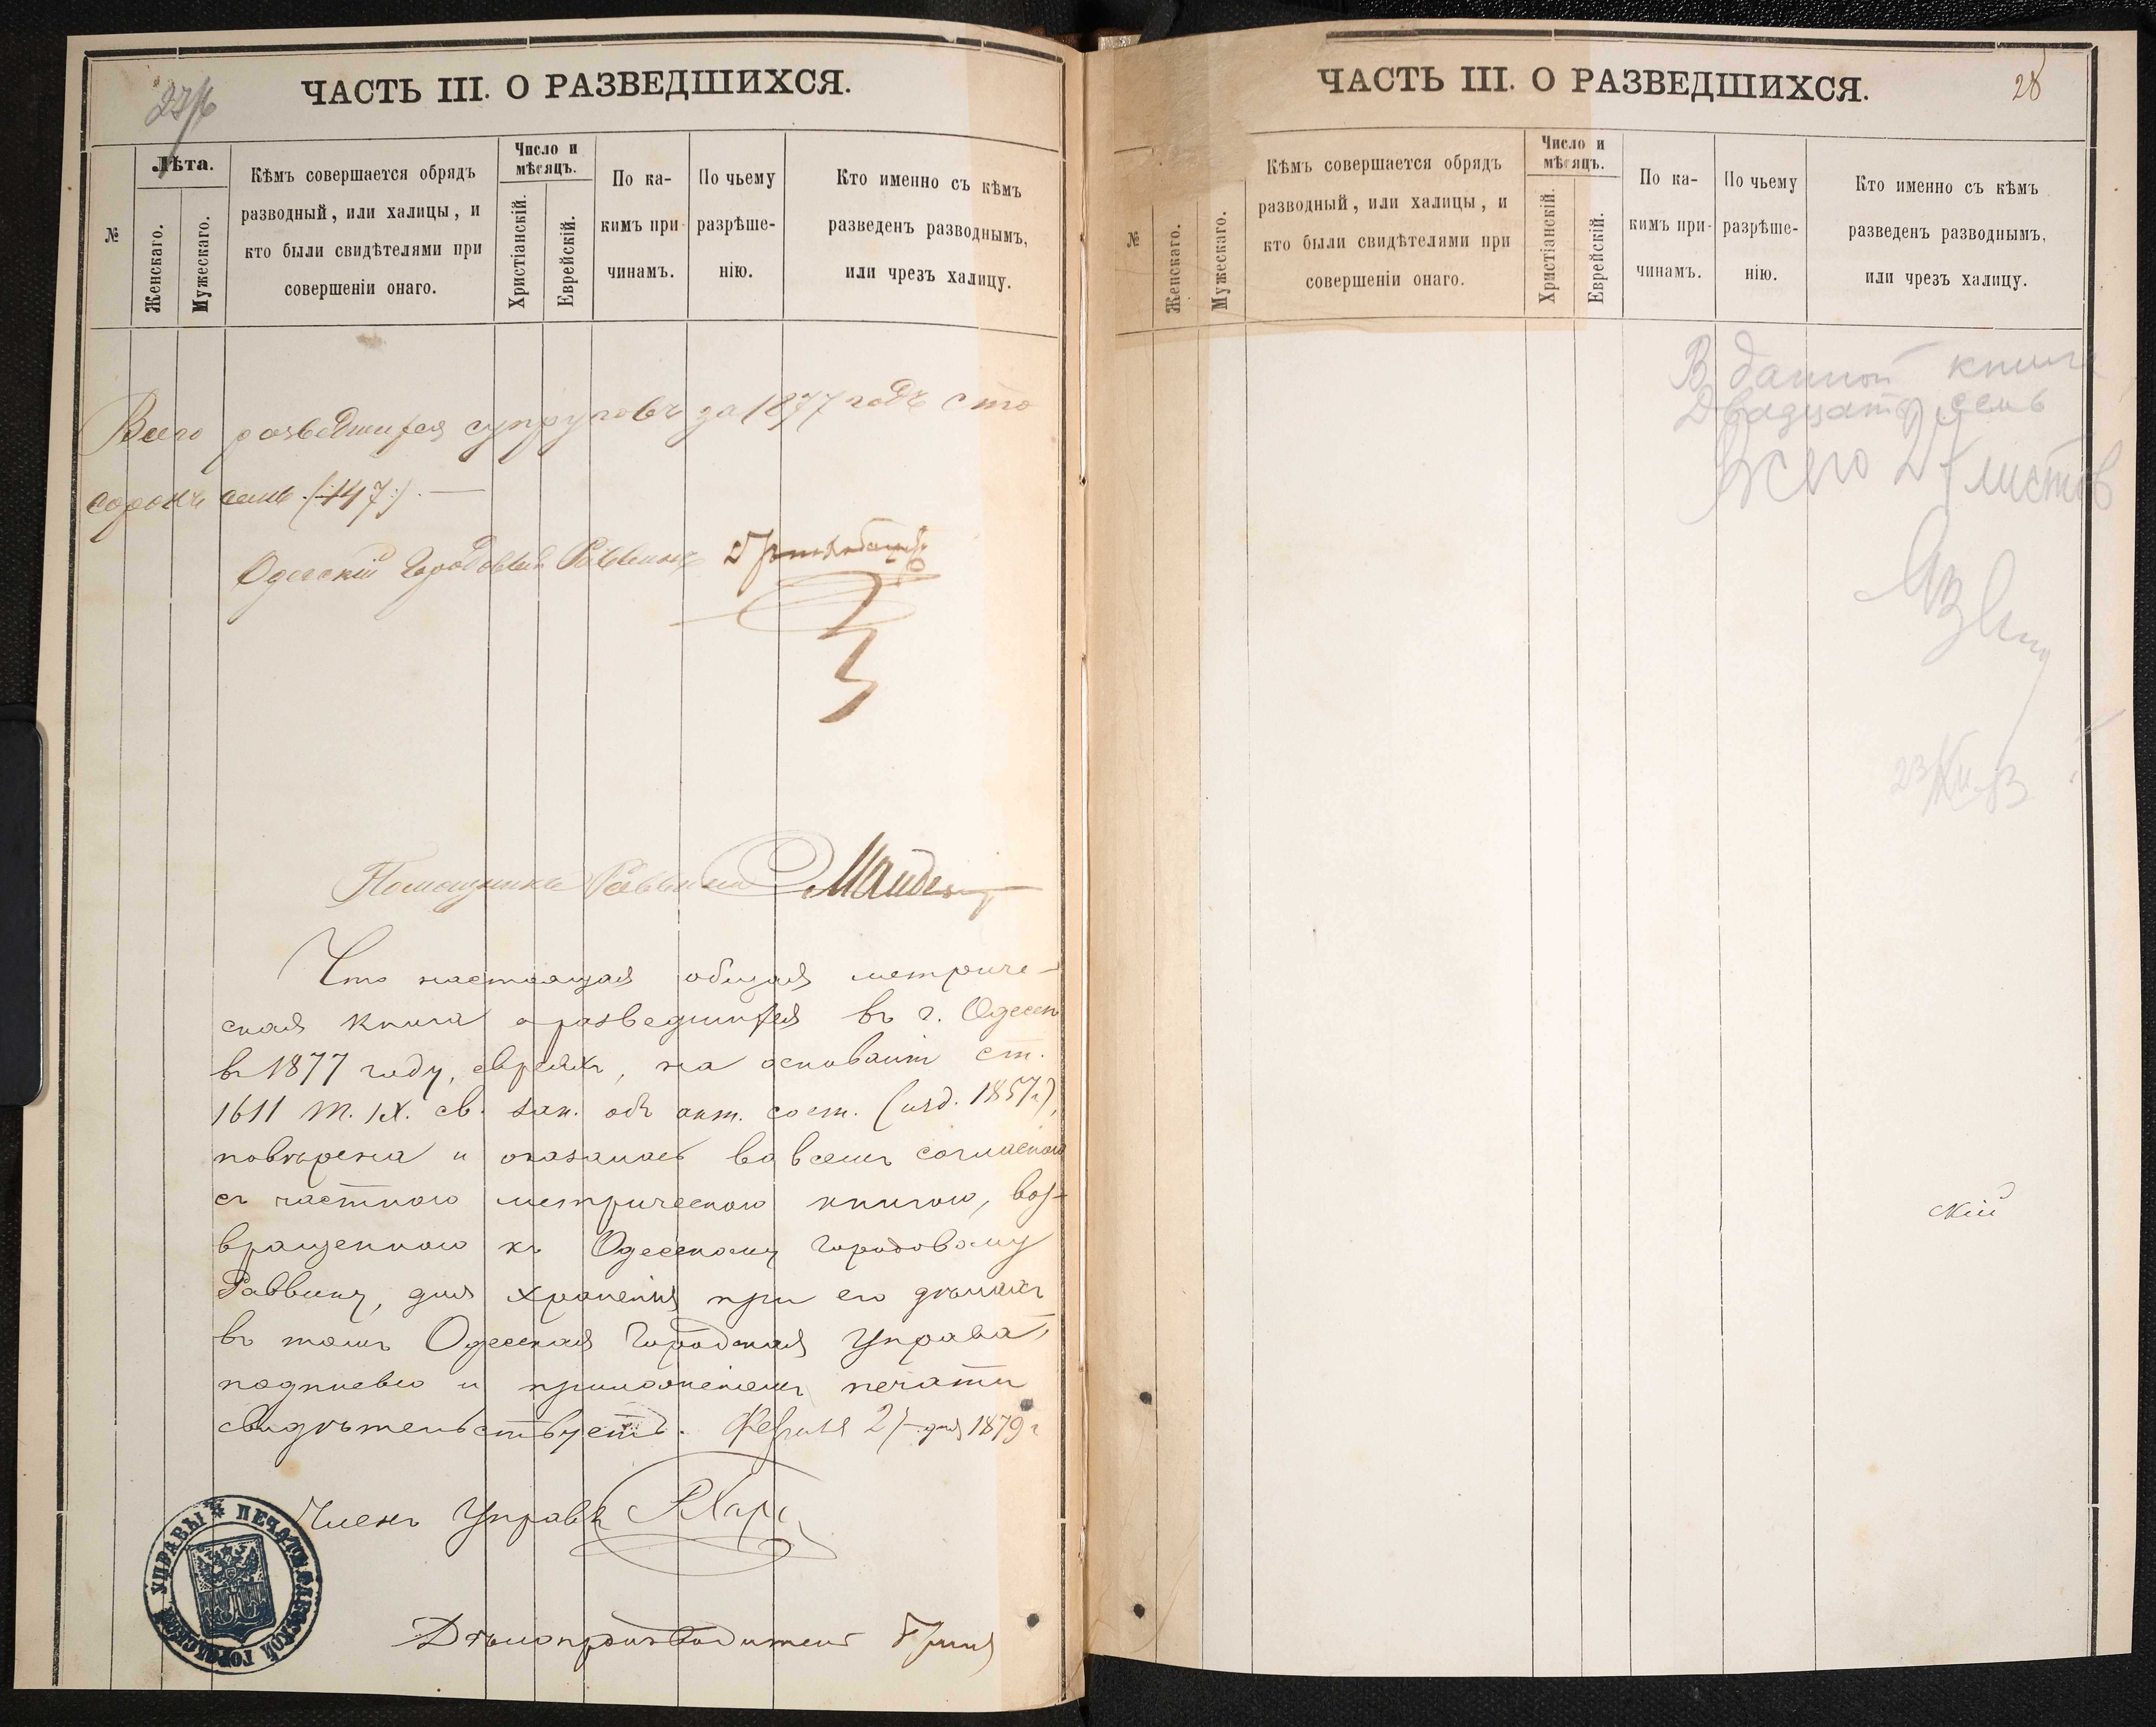 ЧАСТЬ III. О РАЗВЕДШИХСЯ.
№
Лѣта.
Женскаго.
Мужескаго.
Кѣмъ совершается обрядъ
разводный, или халицы, и
кто были свидѣтелями при
совершеніи онаго.
Число и
мѣсяцъ.
Христіанскій.
Еврейскій.
По ка-
кимъ при-
чинамъ.
По чьему
разрѣше-
нію.
Кто именно съ кѣмъ
разведенъ разводнымъ,
или чрезъ халицу.
Всего разведшихся супруговъ за 1877 годъ сто
сорокъ семь (147).
Одесскій Городовый Раввинъ
Помощникъ Раввина
Что настоящая общая метриче-
ская книга о разведшихся въ г. Одессѣ
въ 1877 году, евреяхъ, на основаніи ст.
1611 т. IX. св. зак. объ акт. сост. (изд. 1857 г.),
повѣрена и оказалась во всемъ согласною
съ частною метрическою книгою, воз-
вращенною къ Одесскому Городовому
Раввину, для храненія при его дѣлахъ
въ томъ Одесская Городская Управа,
подписью и приложеніемъ печати
свидѣтельствуетъ. Февраля дня 1879 г
Членъ Управы
Дѣлопроизводитель
ПЕЧАТЬ ОДЕССКОЙ ГОРОДСКОЙ УПРАВЫ
ЧАСТЬ III. О РАЗВЕДШИХСЯ.
28
№
Женскаго.
Мужескаго.
Кѣмъ совершается обрядъ
разводный, или халицы, и
кто были свидѣтелями при
совершеніи онаго.
Число и
мѣсяцъ.
Христіанскій.
Еврейскій.
По ка-
кимъ при-
чинамъ.
По чьему
разрѣше-
нію.
Кто именно съ кѣмъ
разведенъ разводнымъ,
или чрезъ халицу.
В данной книге
Двадцать семь
Всего 27 листов
скій